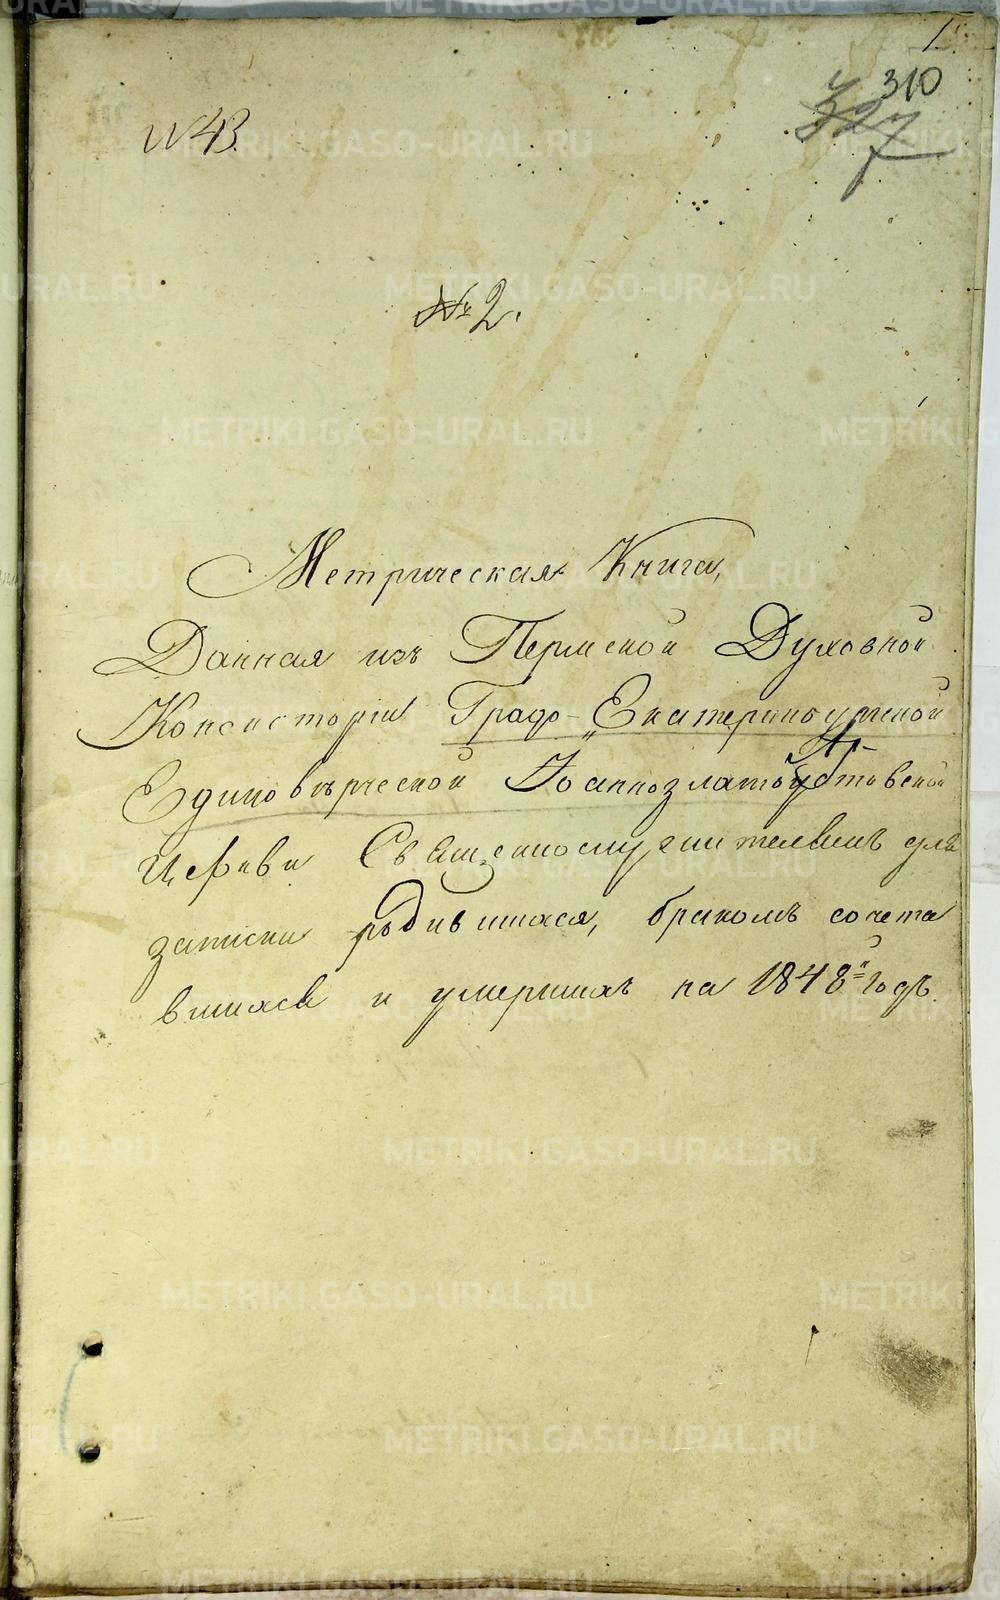 1
310
327
№ 43.
№ 2.
Метрическая Книга,
Данная изъ Пермской Духовной
Консисторіи Градо-Екатеринбургской
Единоверческой Іоаннозлатоустовской
Церкви Священнослужителямъ для
записки родившихся, бракомъ сочета
вшихся и умершихъ на 1848й годъ.
METRIKI.GASO-URAL.RU